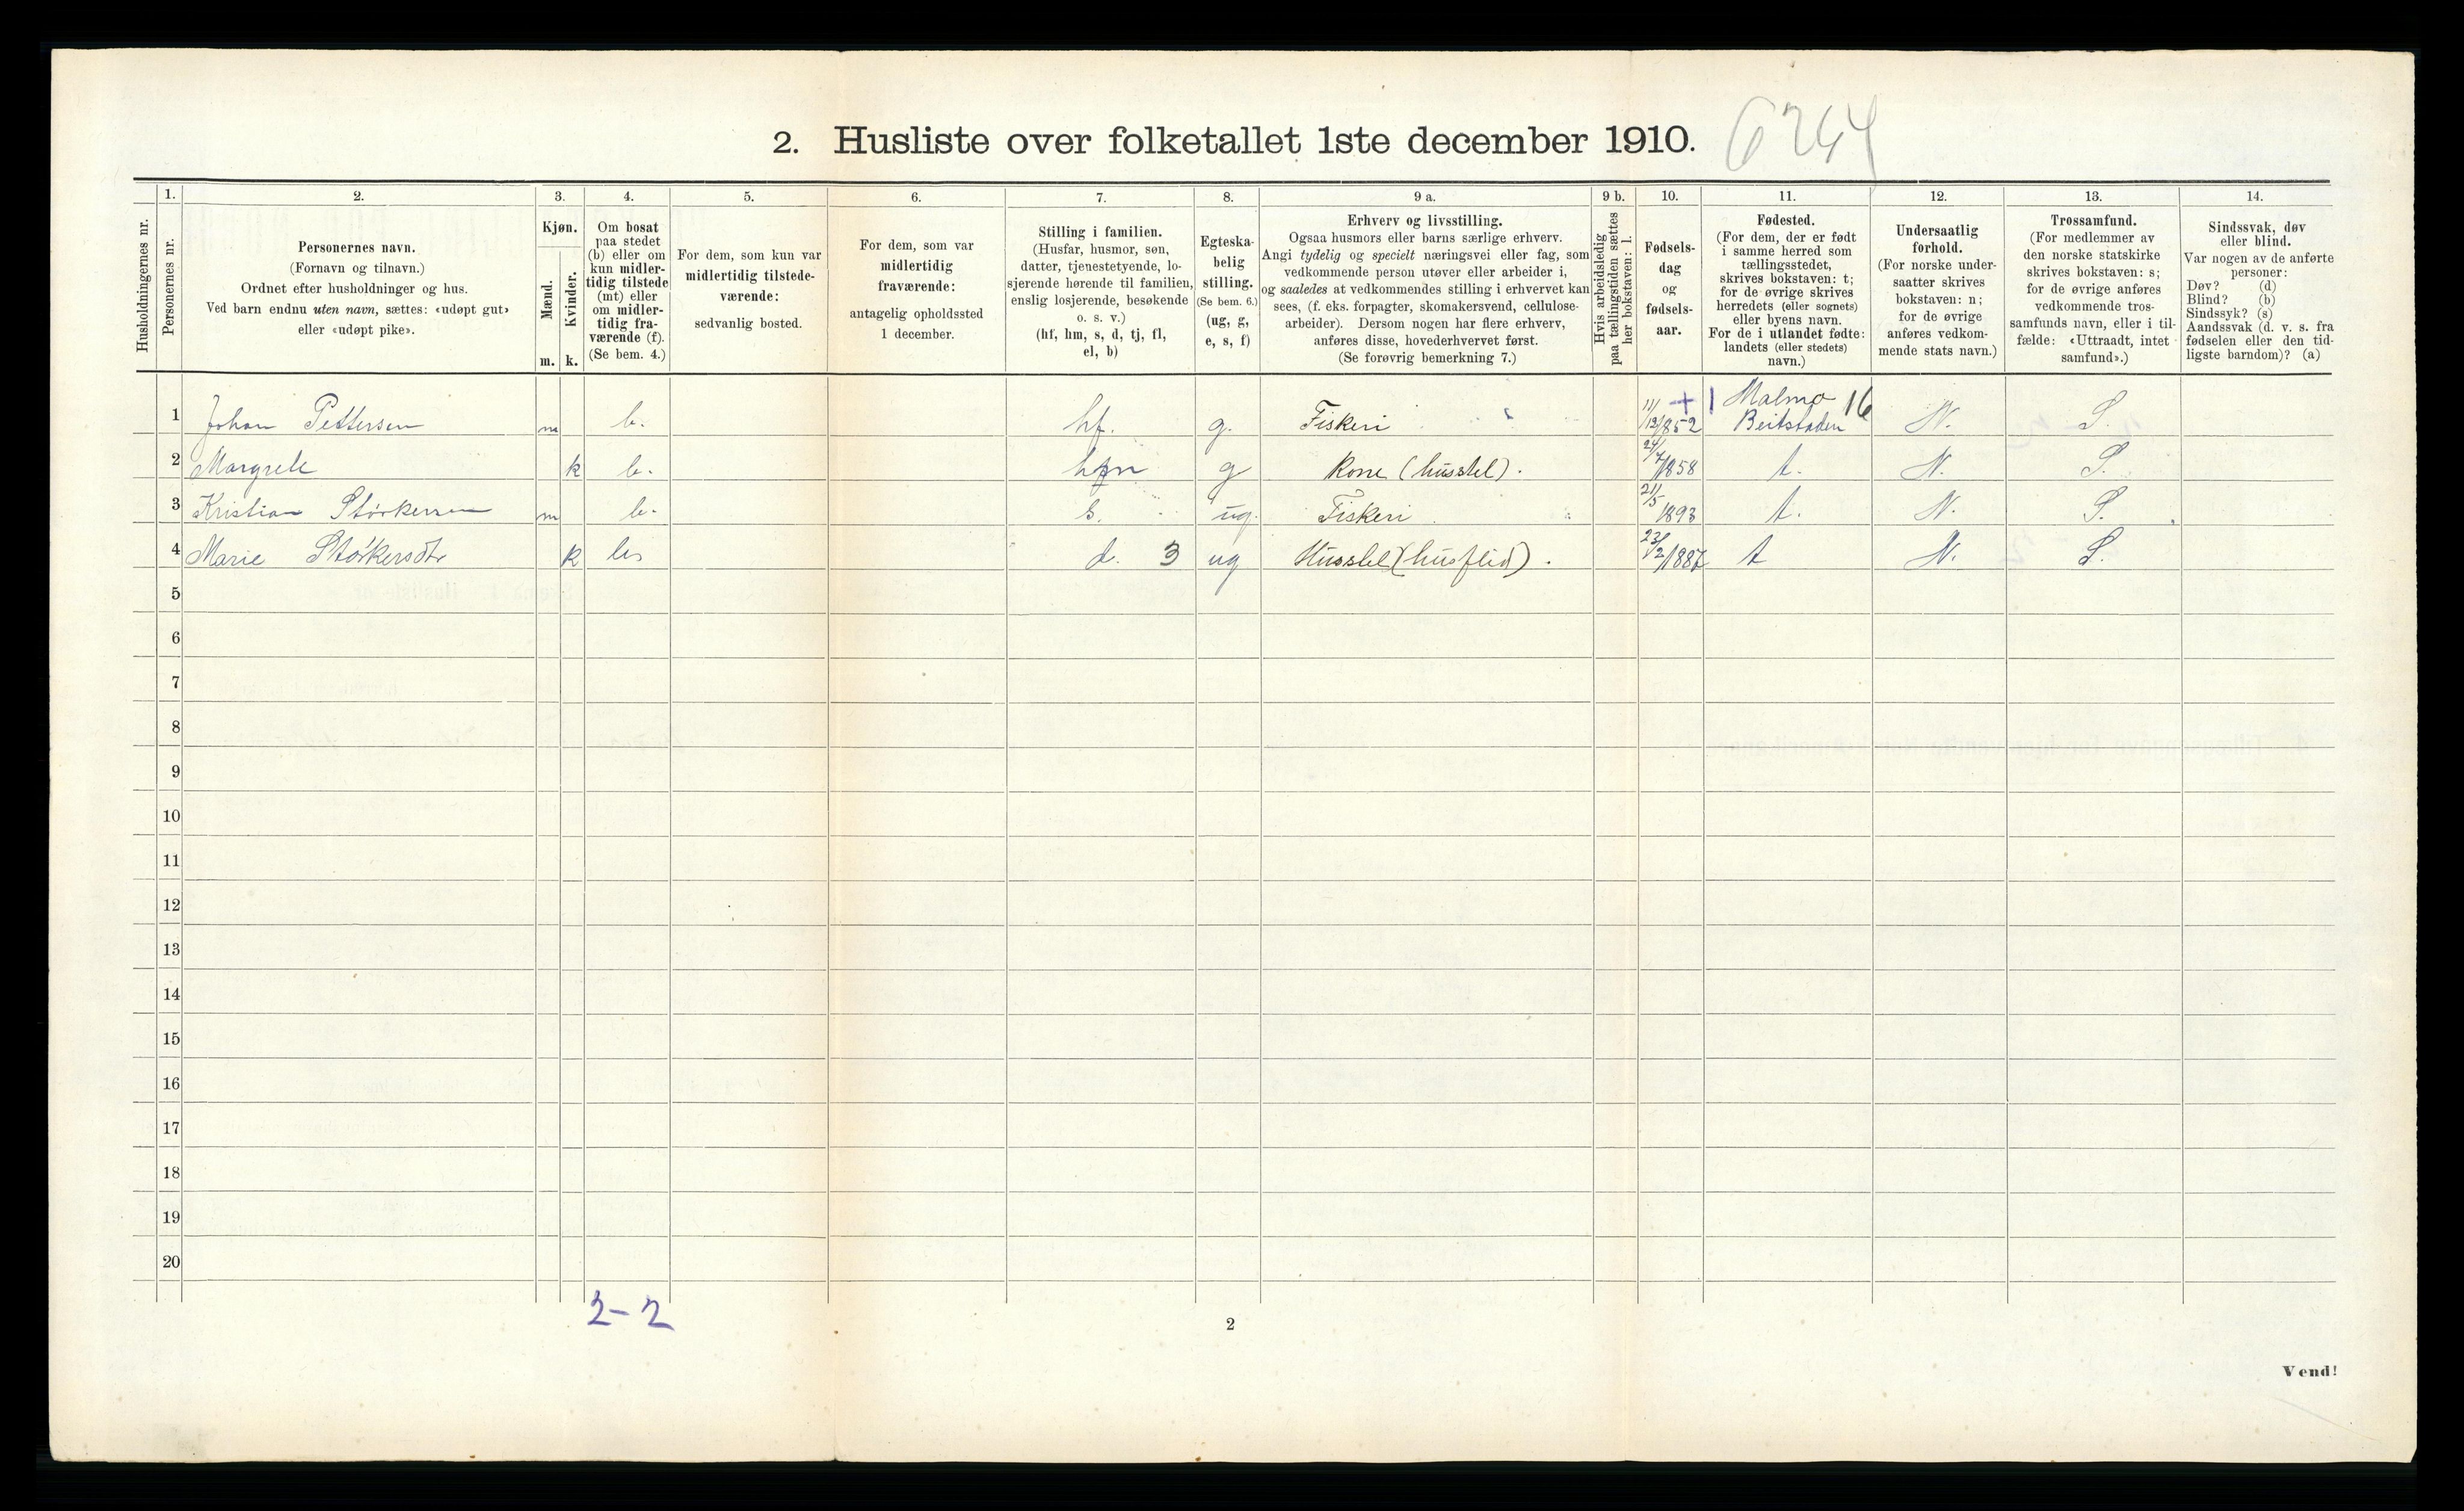 2. Husliste over folketallet 1ste december 1910.
6244
Husholdningernes nr.
1.
Personernes nr.
2.
Personernes navn.
(Fornavn og tilnavn.)
Ordnet efter husholdninger og hus.
Ved barn endnu uten navn, sættes: «udøpt gut»
eller «udøpt pike».
3.
Kjøn.
Mænd.
Kvinder.
m. k.
4.
Om bosat
paa stedet
(b) eller om
kun midler-
tidig tilstede
(mt) eller
om midler-
tidig fra-
værende (f).
(Se bem. 4.)
5.
For dem, som kun var
midlertidig tilstede-
værende:
sedvanlig bosted.
6.
For dem, som var
midlertidig
fraværende:
antagelig opholdssted
1 december.
7.
Stilling i familien.
(Husfar, husmor, søn,
datter, tjenestetyende, lo-
sjerende hørende til familien,
enslig losjerende, besøkende
o. s. v.)
(hf, hm, s, d, tj, fl,
el, b)
8.
Egteska-
belig
stilling.
(Se bem. 6.)
(ug, g,
e, s, f)
9 a.
Erhverv og livsstilling.
Ogsaa husmors eller barns særlige erhverv.
Angi tydelig og specielt næringsvei eller fag, som
vedkommende person utøver eller arbeider i,
og saaledes at vedkommendes stilling i erhvervet kan
sees, (f. eks. forpagter, skomakersvend, cellulose-
arbeider). Dersom nogen har flere erhverv,
anføres disse, hovederhvervet først.
(Se forøvrig bemerkning 7.)
9 b.
Hvis arbeidsledig
paa tællingstiden sættes
her bokstaven: l.
10.
Fødsels-
dag
og
fødsels-
aar.
11.
Fødested.
(For dem, der er født
i samme herred som
tællingsstedet,
skrives bokstaven: t;
for de øvrige skrives
herredets (eller sognets)
eller byens navn.
For de i utlandet fødte:
landets (eller stedets)
navn.)
12.
Undersaatlig
forhold.
(For norske under-
saatter skrives
bokstaven: n;
for de øvrige
anføres vedkom-
mende stats navn.)
13.
Trossamfund.
(For medlemmer av
den norske statskirke
skrives bokstaven: s;
for de øvrige anføres
vedkommende tros-
samfunds navn, eller i til-
fælde: «Uttraadt, intet
samfund».)
14.
Sindssvak, døv
eller blind.
Var nogen av de anførte
personer:
Døv? (d)
Blind? (b)
Sindssyk? (s)
Aandssvak (d. v. s. fra
fødselen eller den tid-
ligste barndom)? (a)
1 Johan Pettersen m b. hf. g. Fiskeri 11/12 1852 + 1 Malmo 16 Beitstaden N. S.
2 Margrete k b. hm g Kone (husstel). 24/7 1858 t. N. S.
3 Kristian Størkersen m b. S. ug. Fiskeri 21/5 1893 t. N. S.
4 Marie Størkersdtr k b. d. 3 ug Husstel (husflid). 23/2 1887 t N. S.
5
6
7
8
9
10
11
12
13
14
15
16
17
18
19
20
2-2
2
Vend!